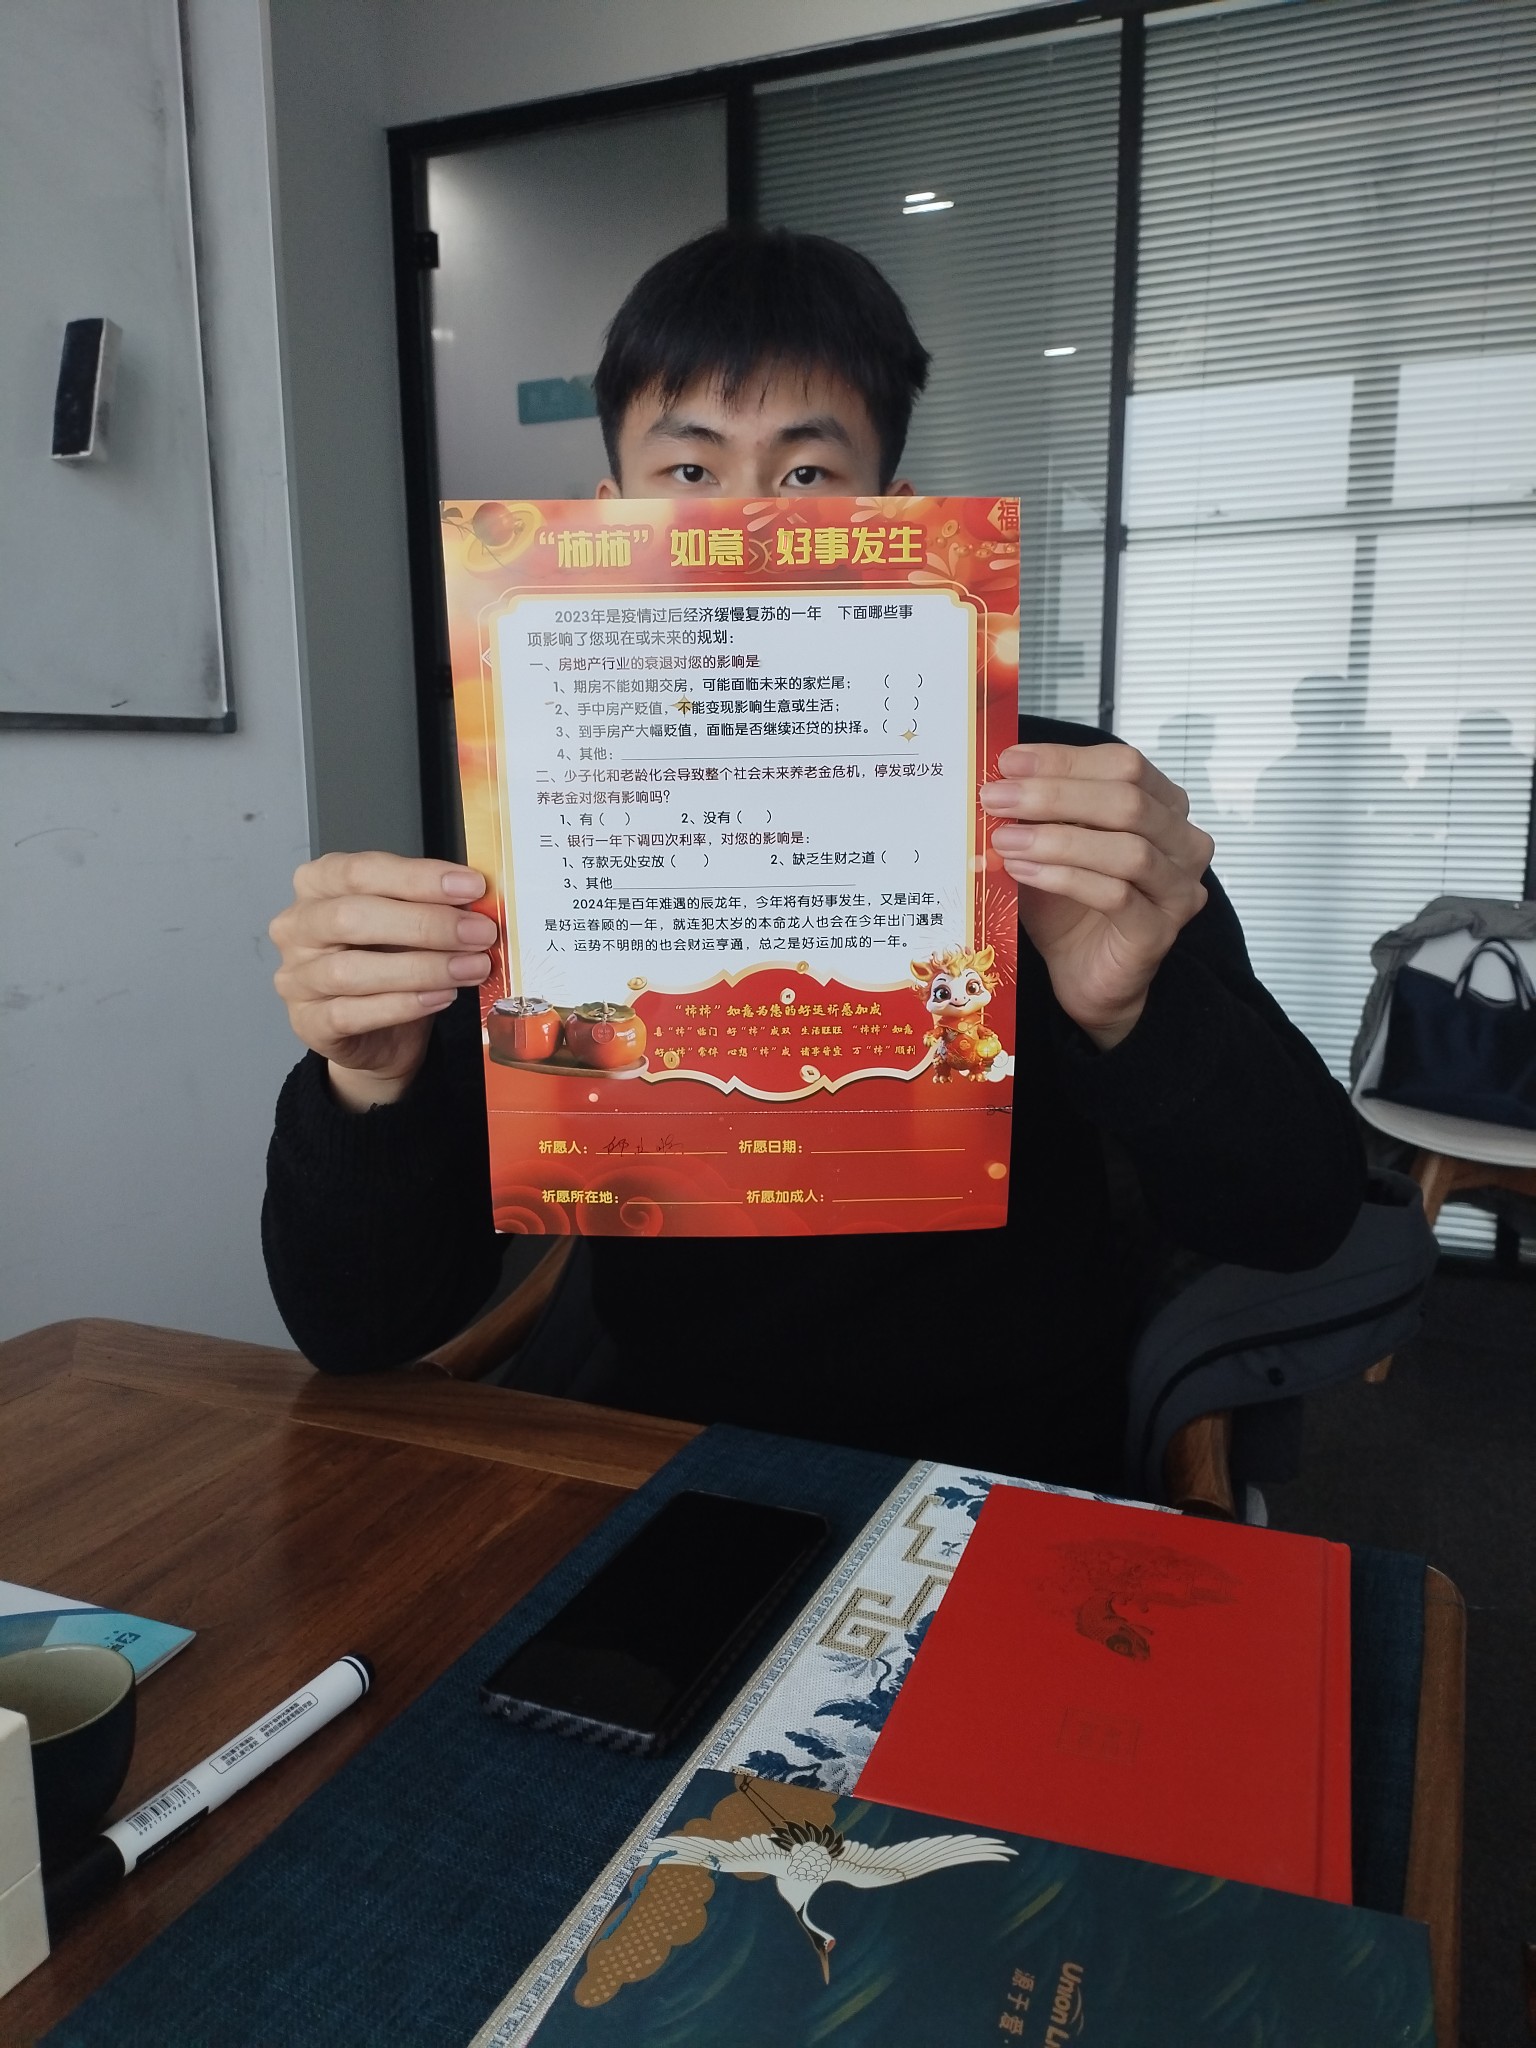 福
“柿柿”如意 好事发生
2023年是疫情过后经济缓慢复苏的一年 下面哪些事
项影响了您现在或未来的规划：
一、房地产行业的衰退对您的影响是
1、期房不能如期交房，可能面临未来的家烂尾； （ ）
2、手中房产贬值，不能变现影响生意或生活； （ ）
3、到手房产大幅贬值，面临是否继续还贷的抉择。（ ）
4、其他：
二、少子化和老龄化会导致整个社会未来养老金危机，停发或少发
养老金对您有影响吗？
1、有（ ） 2、没有（ ）
三、银行一年下调四次利率，对您的影响是：
1、存款无处安放（ ） 2、缺乏生财之道（ ）
3、其他
2024年是百年难遇的辰龙年，今年将有好事发生，又是闰年，
是好运眷顾的一年，就连犯太岁的本命龙人也会在今年出门遇贵
人、运势不明朗的也会财运亨通，总之是好运加成的一年。
“柿柿”如意为您的好运祈愿加成
喜“柿”临门 好“柿”成双 生活旺旺 “柿柿”如意
好“柿”常伴 心想“柿”成 诸事皆宜 万“柿”顺利
祈愿人： 祈愿日期：
祈愿所在地： 祈愿加成人：
6971734968173
Union Li
源于爱.